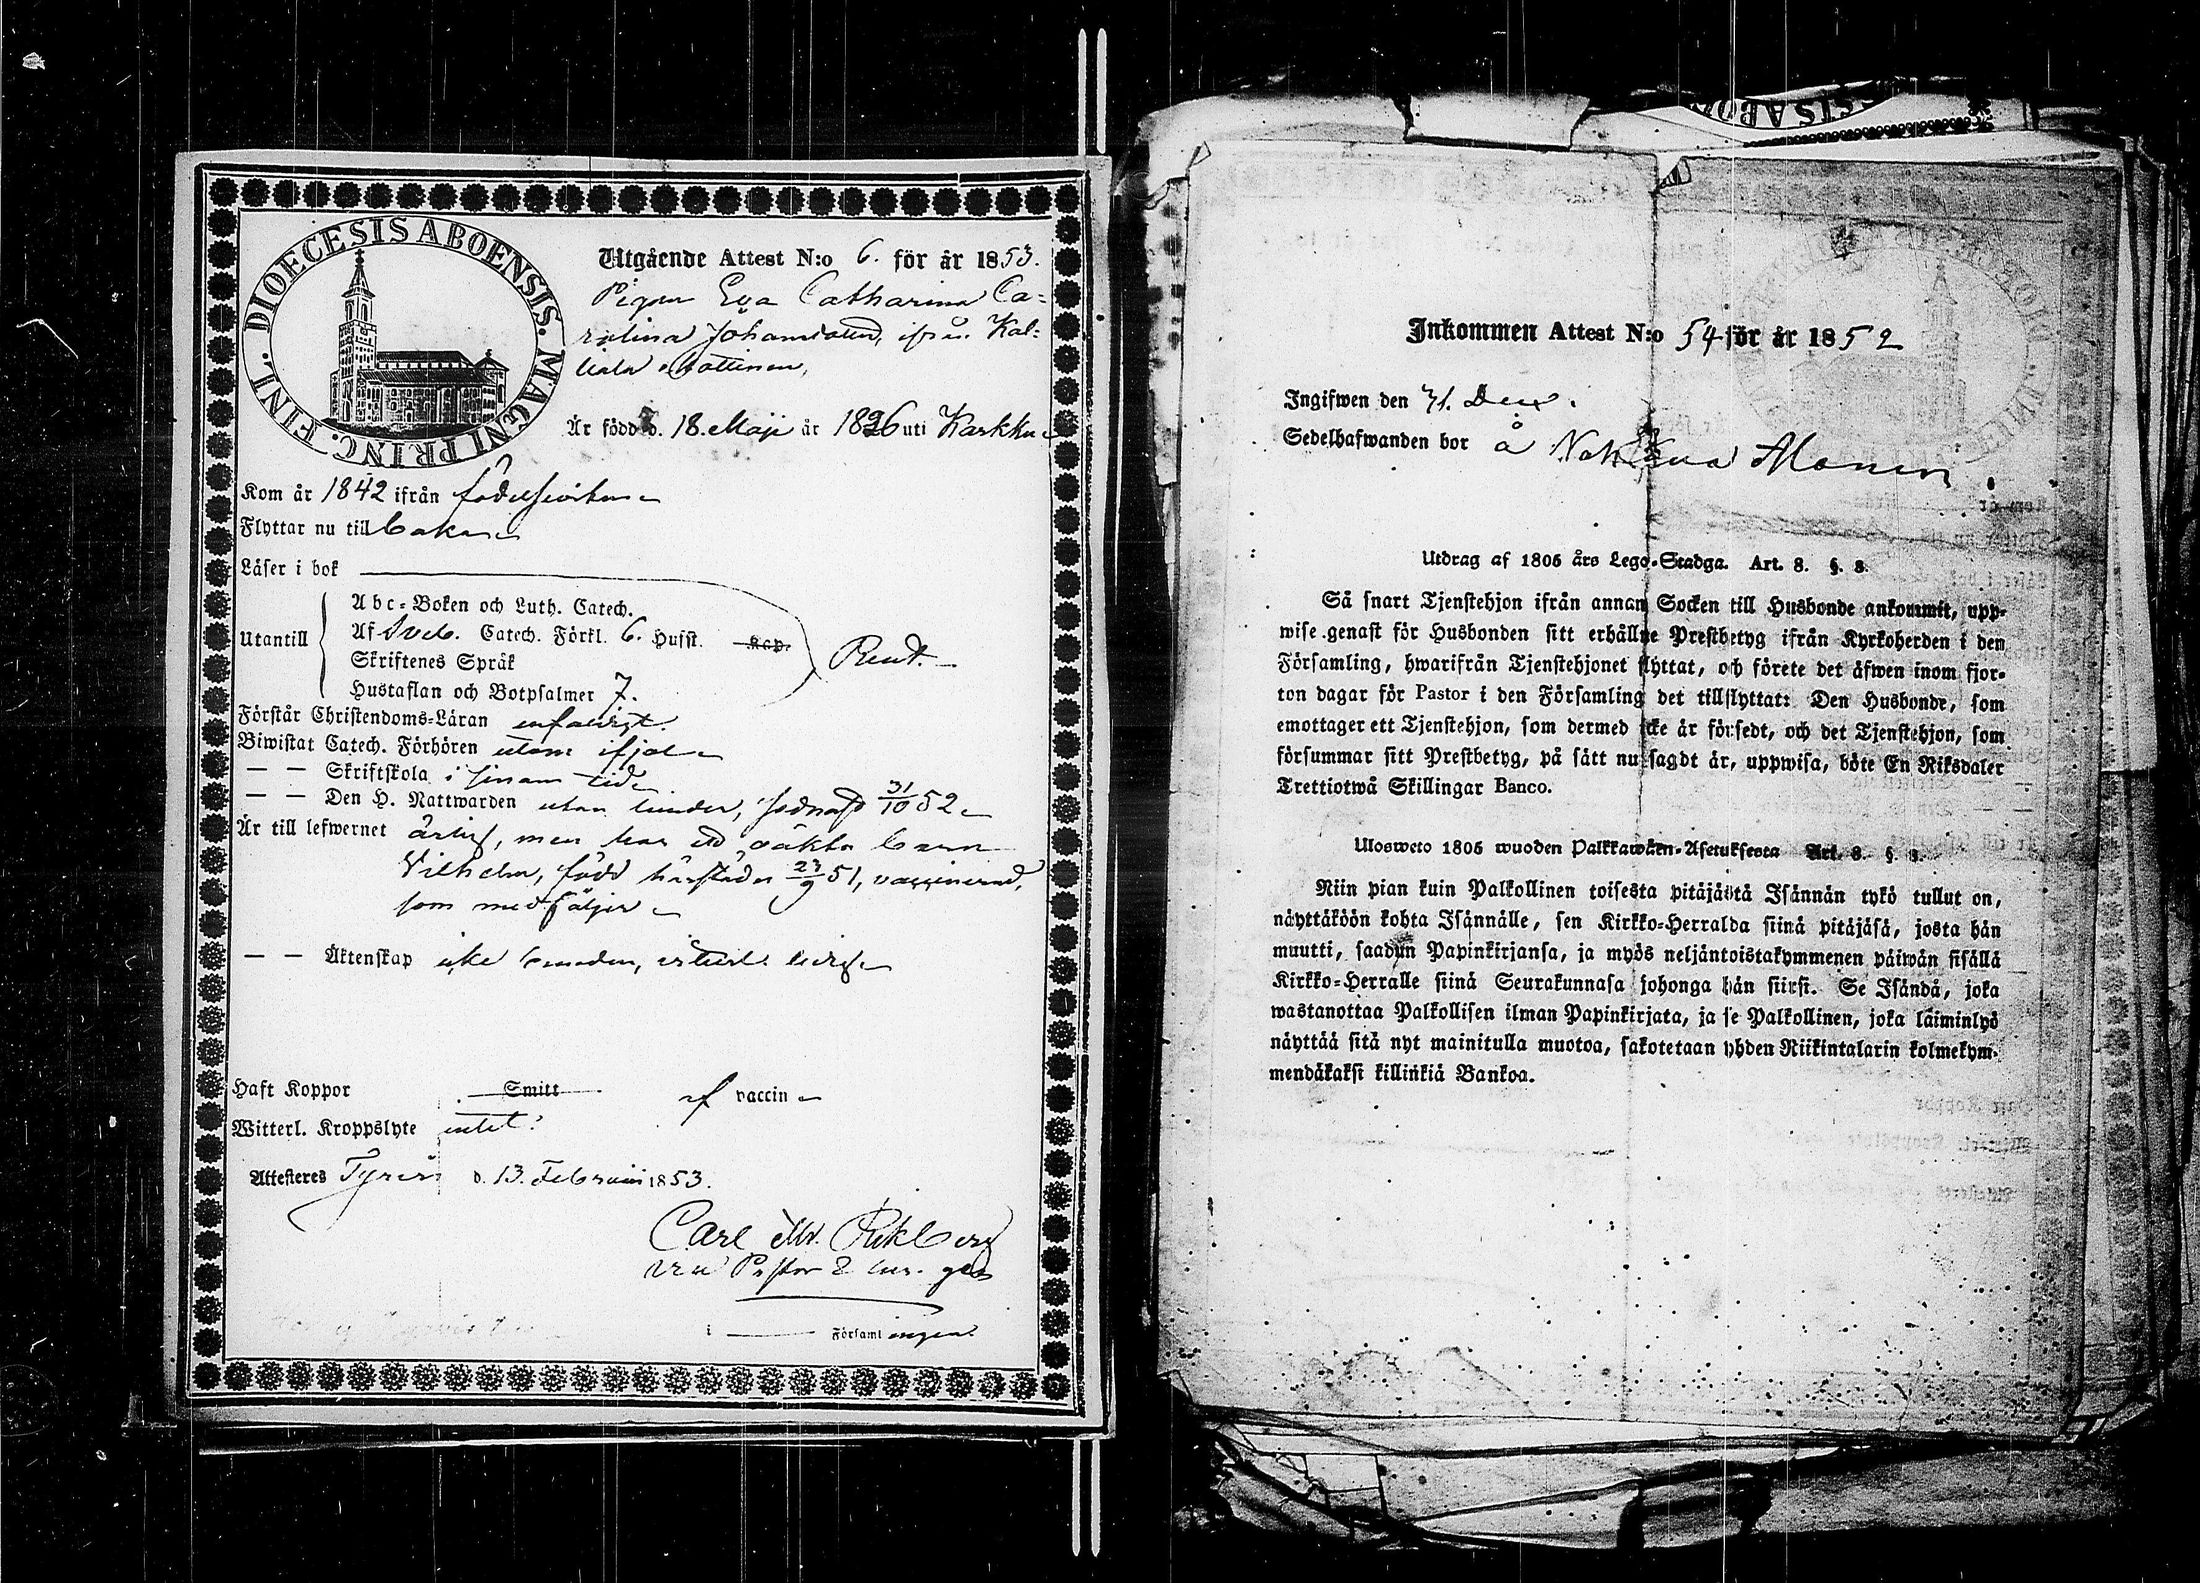 DIOECESIS ABOENSIS. MAGNI PRINC. FINL.
Utgående Attest N:o 6. för år 1853.
Pigan Eva Catharina Ca-
rolina Johansdotter, ifrån Kal-
liala
Är född d. 18. Maji år 1826 uti Karkku
Kom år 1842 ifrån födelseorten
Flyttar nu till baka
Läser i bok
Utantill
Abc-Boken och Luth. Catech.
Af Sveb. Catech. Förkl. 6. Hufst. Kap.
Skriftenes Språk
Hustaflan och Botpsalmer 7.
Rent.
Förstår Christendoms-Läran enfaldigt.
Biwistat Catech. Förhören utom ifjol
— — Skriftskola i sinom tid
— — Den H. Nattwarden utan hinder, sednast 31/10 52
Är till lefwernet ärlig, men har ett oäkta barn
Vilhelm, född härstädes 23/9 51, vaccinerad,
som medföljer
— — Äktenskap icke bunden, veterl. ledig
Haft Koppor Smitt af vaccin
Witterl. Kroppslyte intet.
Attesteres Tyrvis d. 13. Februarii 1853.
Carl M. Rikberg
v. Pastor
i Församlingen.
SIS ABO
Inkommen Attest N:o 54 för år 1852
Ingifwen den 31. Dec.
Sedelhafwanden bor å
Utdrag af 1805 års Lego-Stadga. Art. 8. §. 8.
Så snart Tjenstehjon ifrån annan Socken till Husbonde ankommit, upp-
wise genast för Husbonden sitt erhållne Prestbetyg ifrån Kyrkoherden i den
Församling, hwarifrån Tjenstehjonet flyttat, och förete det äfwen inom fjor-
ton dagar för Pastor i den Församling det tillflyttat: Den Husbonde, som
emottager ett Tjenstehjon, som dermed icke är försedt, och det Tjenstehjon, som
försummar sitt Prestbetyg, på sätt nu sagdt är, uppwisa, böte En Riksdaler
Trettiotwå Skillingar Banco.
Ulosweto 1805 wuoden Palkkawäen-Asetuksesta Art. 8. §. 8.
Niin pian kuin Palkollinen toisesta pitäjästä Isännän tykö tullut on,
näyttäköön kohta Isännälle, sen Kirkko-Herralda siinä pitäjäsä, josta hän
muutti, saadun Papinkirjansa, ja myös neljäntoistakymmenen päiwän sisällä
Kirkko-Herralle siinä Seurakunnasa johonga hän siirsi. Se Isändä, joka
wastanottaa Palkollisen ilman Papinkirjata, ja se Palkollinen, joka läiminlyö
näyttää sitä nyt mainitulla muotoa, sakotetaan yhden Riikintalarin kolmekym-
mendäkaksi killinkiä Bankoa.